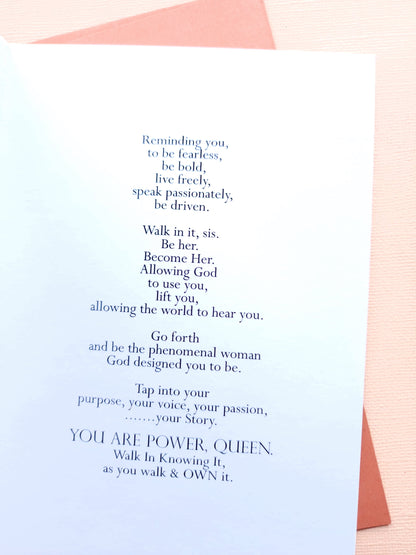 Reminding you,
to be fearless,
be bold,
live freely,
speak passionately,
be driven.
Walk in it, sis.
Be her.
Become Her.
Allowing God
to use you,
lift you,
allowing the world to hear you.
Go forth
and be the phenomenal woman
God designed you to be.
Tap into your
purpose, your voice, your passion,
.......your Story.
YOU ARE POWER, QUEEN.
Walk In Knowing It,
as you walk & OWN it.